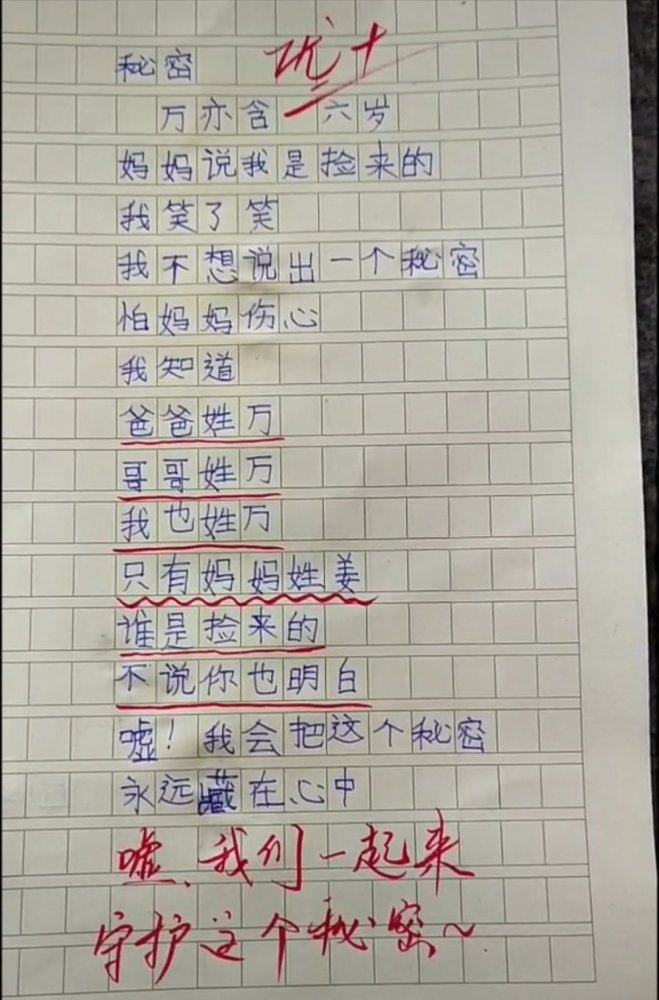 秘密 优+
万亦含 六岁
妈妈说我是捡来的
我笑了笑
我不想说出一个秘密
怕妈妈伤心
我知道
爸爸姓万
哥哥姓万
我也姓万
只有妈妈姓姜
谁是捡来的
不说你也明白
嘘！我会把这个秘密
永远藏在心中
嘘，我们一起来
守护这个秘密~